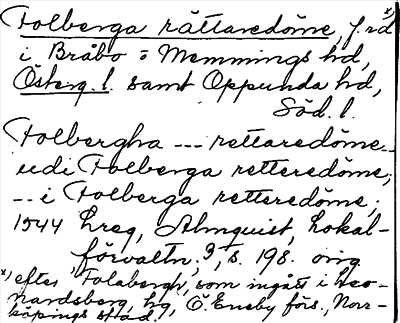 Folberga rättaredöme, f.rd x)
i Bråbo o Memmings hd,
Österg. l. samt Oppunda hd,
Söd. l.
Folbergha --- rettaredöme
--- udi Folberga retteredöme;
--- i Folberga retteredöme;
1544 hreg, Almquist, Lokal-
förvaltn. 3, s. 198. orig
x) efter "Folaberg", som ingått i Leo-
nardsberg, hg, Ö. Eneby förs., Norr-
köpings stad.